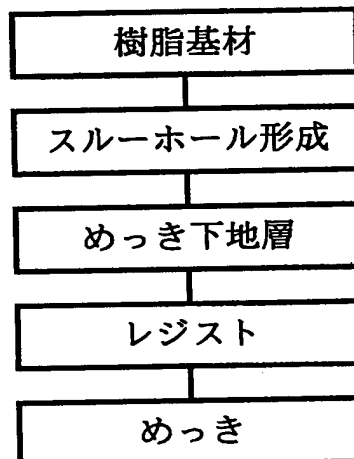 樹脂基材
スルーホール形成
めっき下地層
レジスト
めっき